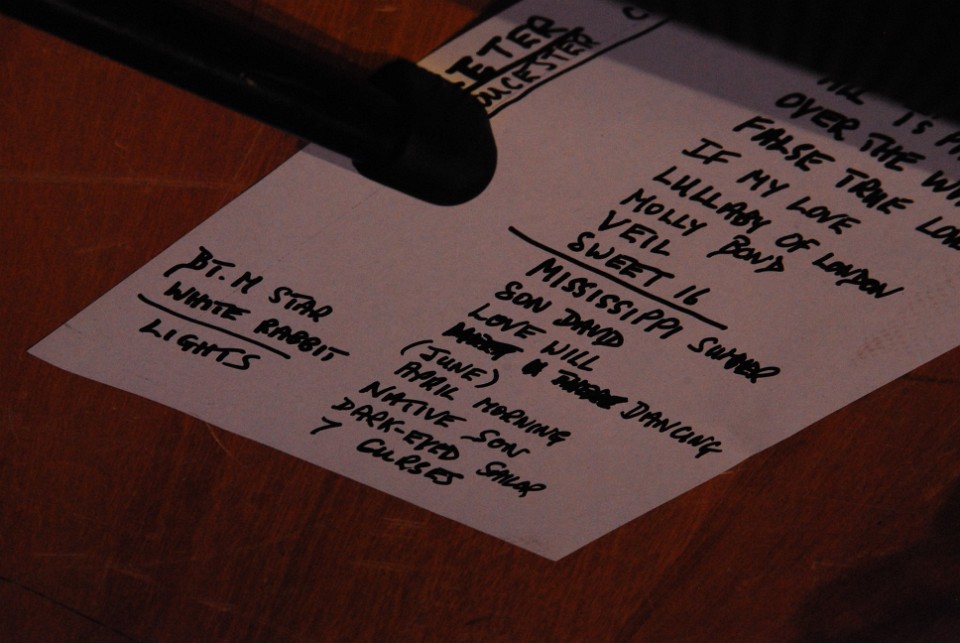 ETER
OUCESTER
IS
OVER THE
FALSE TRUE
IF MY LOVE
LULLABY OF LONDON
MOLLY BOND
VEIL
SWEET 16
MISSISSIPPI SUMMER
SON DAVID
LOVE WILL
DANCING
(JUNE)
APRIL MORNING
NATIVE SON
DARK-EYED SAILOR
7 CURSES
BT. M STAR
WHITE RABBIT
LIGHTS